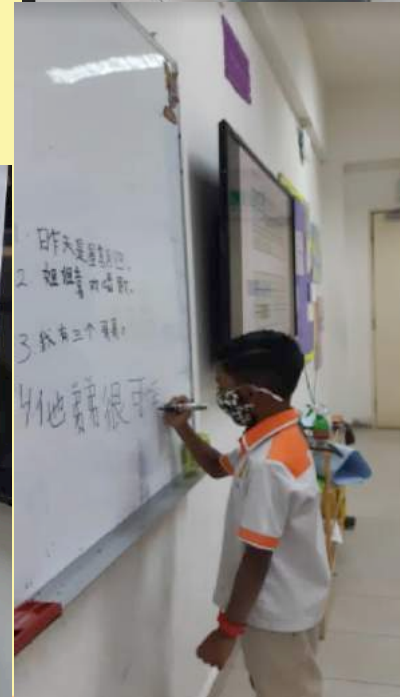 1. 昨天是星期四。
2 姐姐喜欢唱歌。
3 我有三个弟弟。
4 他弟弟很可